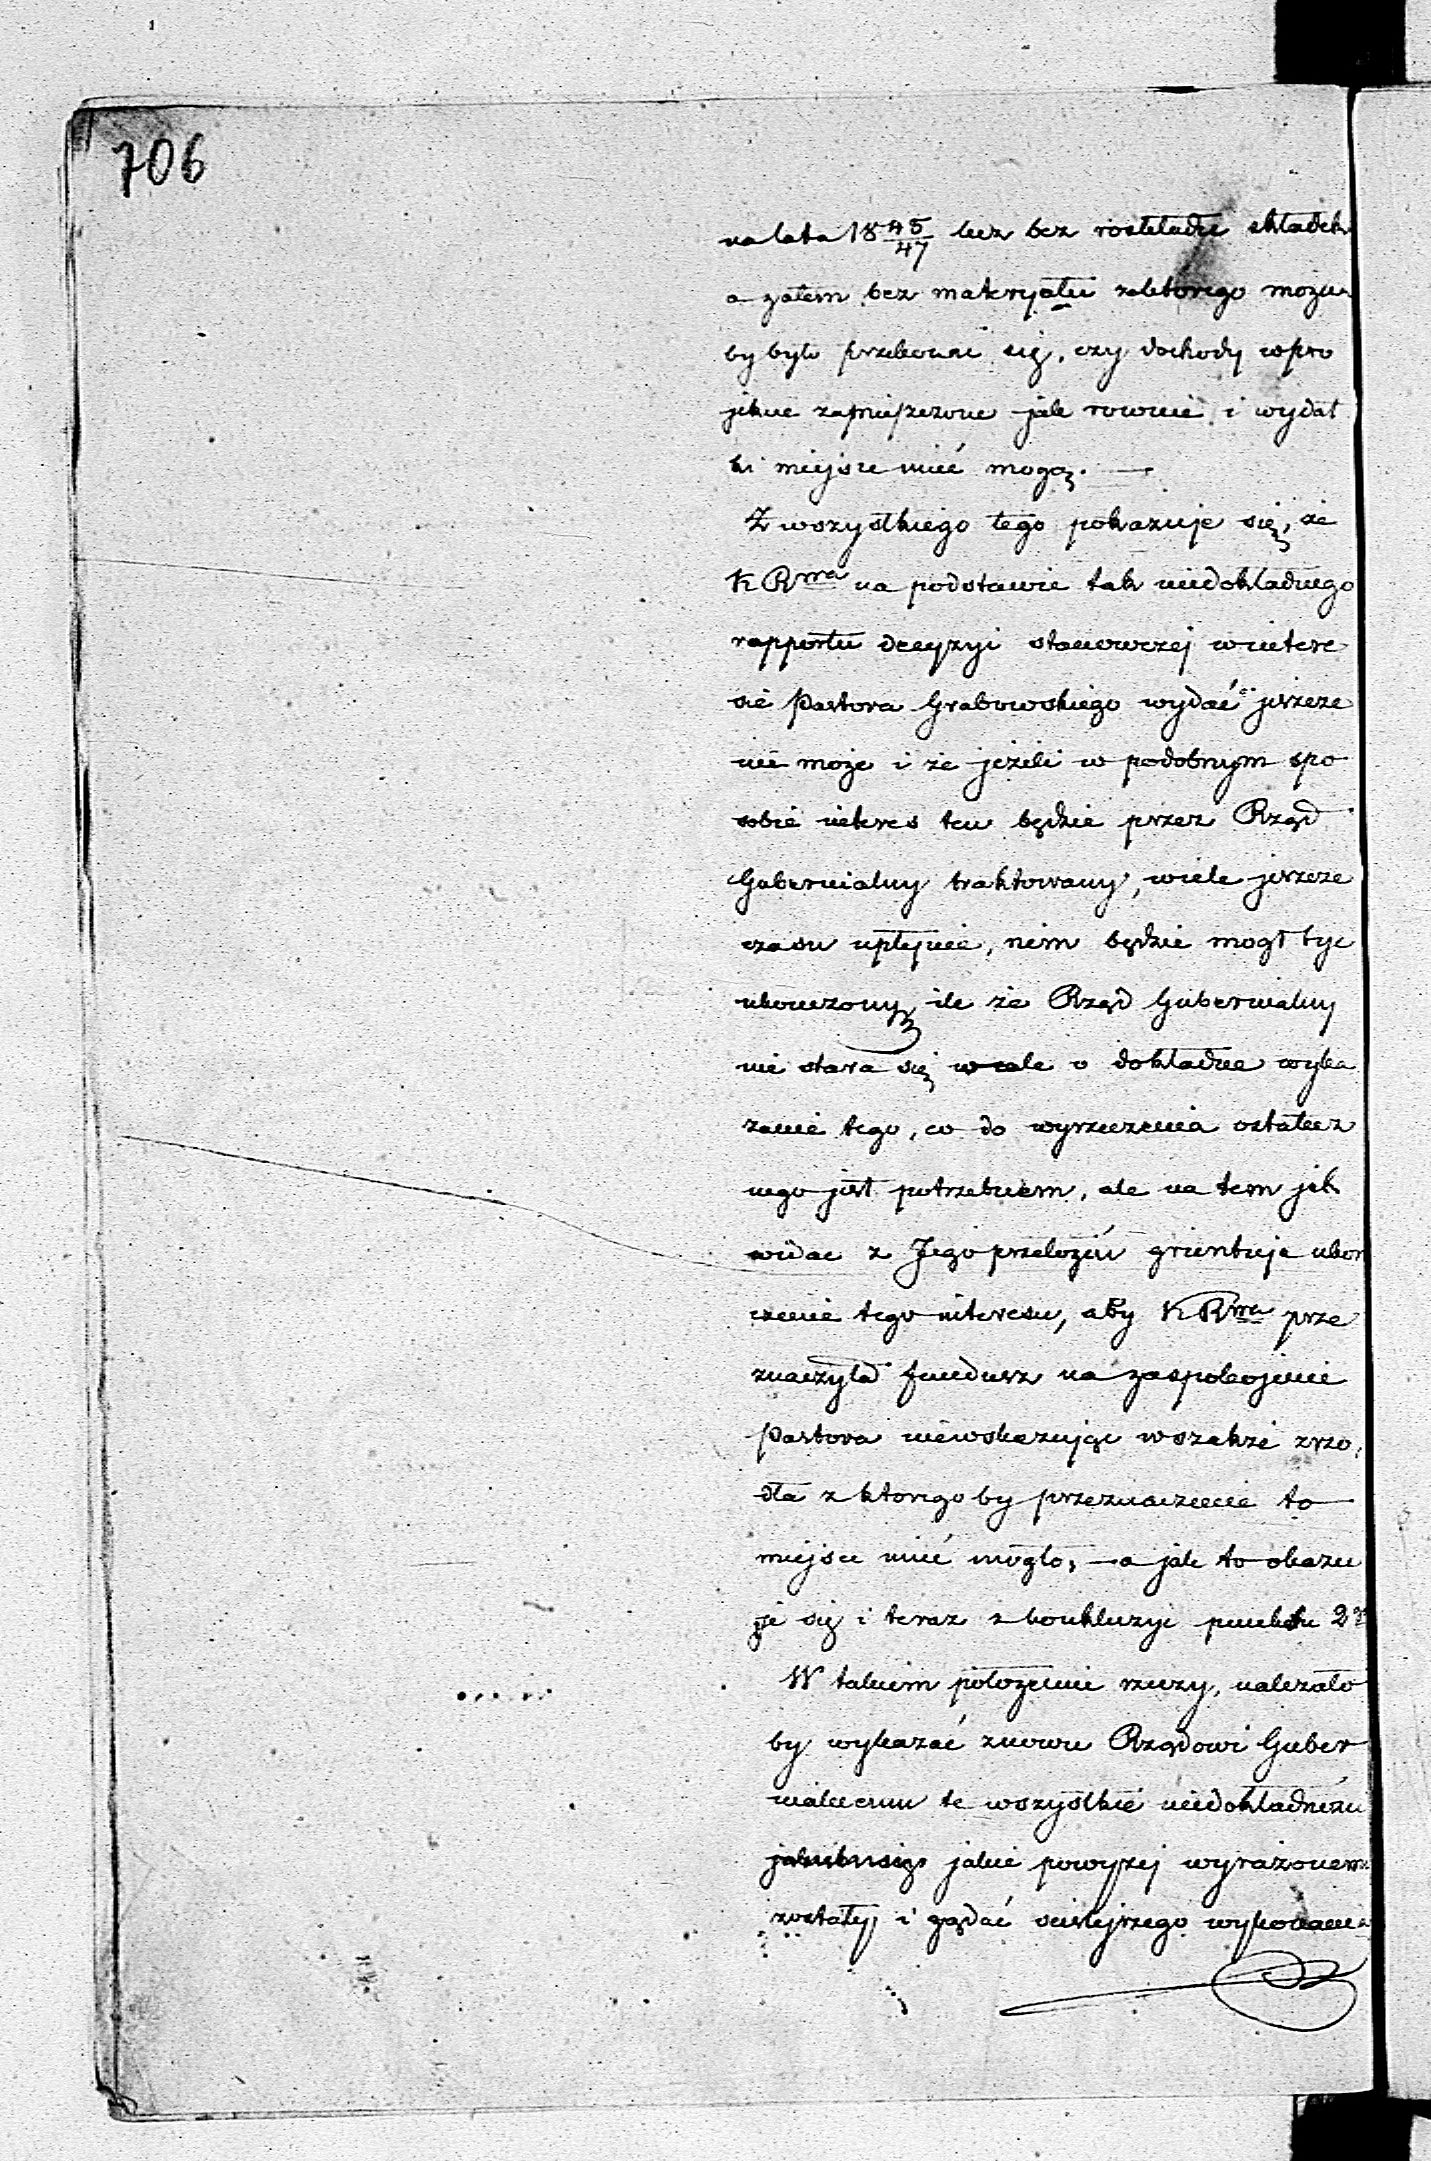 706
na lata 18 45/47 lecz bez rozkładu składek
a zatem bez materyału z którego można
by było przekonać się, czy dochody w pro
jekcie zamieszczone jak rownie i wydat
ki miejsce mieć mogą. —
Z wszystkiego tego pokazuje się, że
K R wa na podstawie tak niedokładnego
rapportu decyzyi stanowczej w intere
sie Pastora Grabowskiego wydać jeszcze
nie może i że jeżeli w podobnym spo
sobie interes ten będzie przez Rząd
Gubernialny traktowany, wiele jeszcze
czasu upłynie, nim będzie mogł byc
ukonczony, ile że Rząd Gubernialny
nie stara się wcale o dokładne wyka
zanie tego, co do wyrzeczenia ostatecz
nego jest potrzebnem, ale na tem jak
widac z Jego przełożeń gruntuje ukon
czenie tego interesu, aby K R wa prze
znaczyła fundusz na zaspokojenie
Pastora niewskazując wszakże zrzo,
dła z ktorego by przeznaczenie to
miejsce mieć mogło, — a jak to okazu
je się i teraz z konkluzyi punktu 2go
W takiem położeniu rzeczy, należało
by wykazać znowu Rządowi Guber
nialnemu te wszystkie niedokładności
jakie powyżej wyrażonemi
zostały i żądać scislejszego wykonania